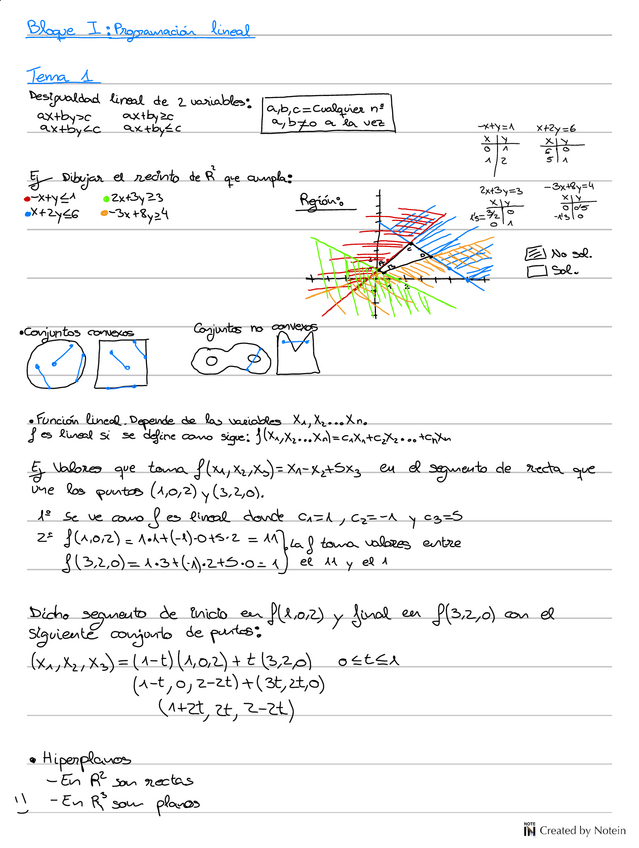 Bloque I: Programación lineal
Tema 1
Desigualdad lineal de 2 variables:
ax+by>c ax+by≥c
ax+by<c ax+by≤c
a,b,c=Cualquier nº
a,b≠0 a la vez
-x+y=1 x+2y=6
x y x y
0 1 6 0
1 2 5 1
Ej Dibujar el recinto de R² que cumpla:
-x+y≤1 2x+3y≥3
x+2y≤6 -3x+8y≥4
Región:
2x+3y=3 -3x+8y=4
x y x y
1'5=3/2 0 0 0'5
0 1 -1'3 0
No sol.
Sol.
•Conjuntos convexos Conjuntos no convexos
•Función lineal. Depende de las variables X1, X2... Xn.
f es lineal si se define como sigue: f(X1,X2...Xn)=C1X1+C2X2...+CnXn
Ej Valores que toma f(x1,x2,x3)=x1-x2+5x3 en el segmento de recta que
une los puntos (1,0,2) y (3,2,0).
1º Se ve como f es lineal donde c1=1, c2=-1 y c3=5
2º f(1,0,2)=1·1+(-1)·0+5·2=11 La f toma valores entre
f(3,2,0)=1·3+(-1)·2+5·0=1 el 11 y el 1
Dicho segmento de inicio en f(1,0,2) y final en f(3,2,0) con el
siguiente conjunto de puntos:
(x1,x2,x3)=(1-t)(1,0,2)+t(3,2,0) 0≤t≤1
(1-t, 0, 2-2t)+(3t,2t,0)
(1+2t, 2t, 2-2t)
• Hiperplanos
-En R² son rectas
-En R³ son planos
NOTE IN Created by Notein